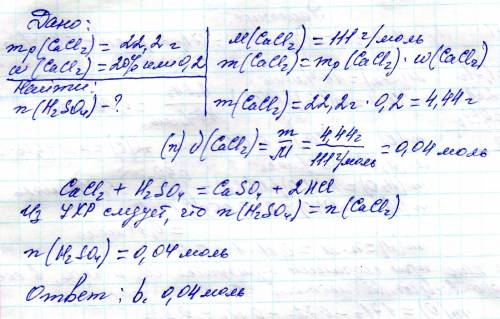 Дано:
mр(CaCl₂)=22,2г
ω(CaCl₂)=20% или 0,2
Найти:
n(H₂SO₄)-?
M(CaCl₂)=111 г/моль
m(CaCl₂)=mр(CaCl₂)·ω(CaCl₂)
m(CaCl₂)=22,2г·0,2=4,44г
(n) ∂(CaCl₂)=m/M=4,44г/111г/моль=0,04моль
CaCl₂+H₂SO₄=CaSO₄+2HCl
Из УХР следует, что n(H₂SO₄)=n(CaCl₂)
n(H₂SO₄)=0,04моль
Ответ: b. 0,04моль